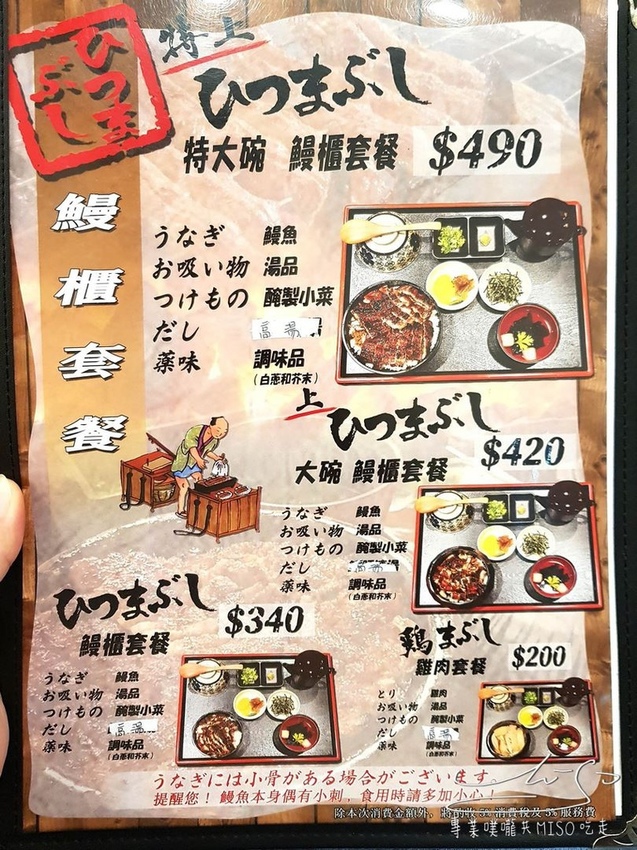 ひつま
ぶし
特上
ひつまぶし
特大碗 鰻櫃套餐 $490
鰻櫃套餐
うなぎ 鰻魚
お吸い物 湯品
つけもの 醃製小菜
だし 高湯
薬味 調味品
(白蔥和芥末)
上
ひつまぶし
大碗 鰻櫃套餐 $420
うなぎ 鰻魚
お吸い物 湯品
つけもの 醃製小菜
だし 高湯
薬味 調味品
(白蔥和芥末)
ひつまぶし
鰻櫃套餐 $340
うなぎ 鰻魚
お吸い物 湯品
つけもの 醃製小菜
だし 高湯
薬味 調味品
(白蔥和芥末)
鶏まぶし
雞肉套餐 $200
とり 雞肉
お吸い物 湯品
つけもの 醃製小菜
だし 高湯
薬味 調味品
(白蔥和芥末)
うなぎには小骨がある場合がございます
提醒您！鰻魚本身偶有小刺，食用時請多加小心！
除本次消費金額外、將酌收5%消費稅及5%服務費
專業噗嚨共MISO吃走